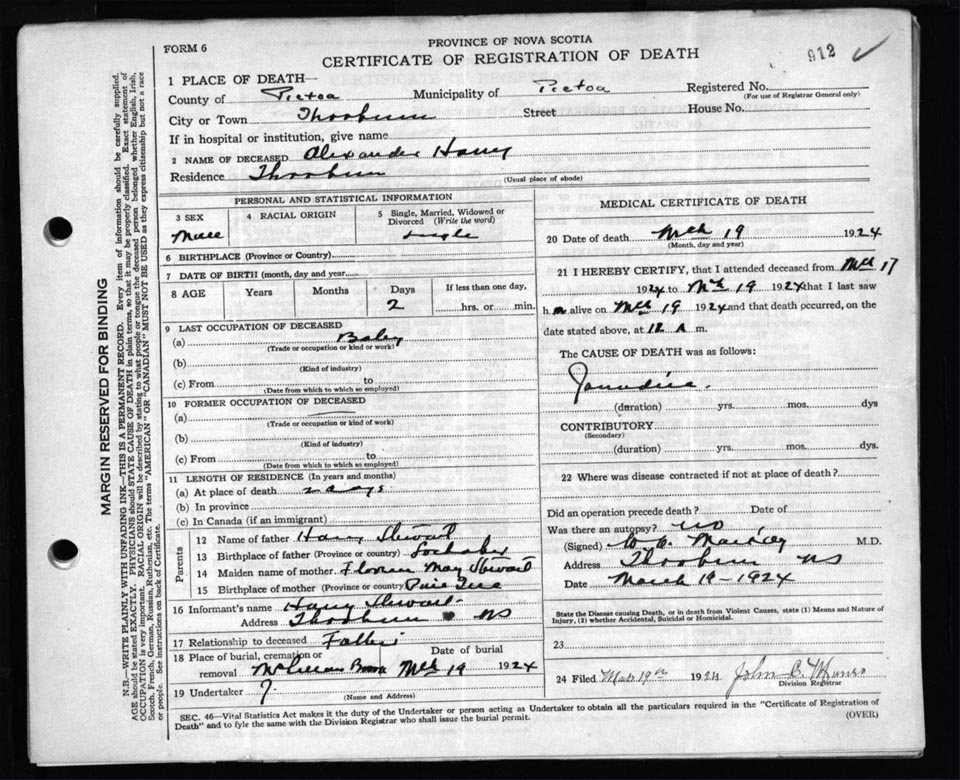 FORM 6
PROVINCE OF NOVA SCOTIA
CERTIFICATE OF REGISTRATION OF DEATH
912 ✓
1 PLACE OF DEATH—
County of Pictou Municipality of Pictou Registered No.
(For use of Registrar General only)
City or Town Thorburn Street House No.
If in hospital or institution, give name
2 NAME OF DECEASED Alexander Harry
Residence Thorburn
(Usual place of abode)
PERSONAL AND STATISTICAL INFORMATION
3 SEX
Male
4 RACIAL ORIGIN
5 Single, Married, Widowed or Divorced (Write the word)
single
6 BIRTHPLACE (Province or Country)
7 DATE OF BIRTH (month, day and year
8 AGE Years Months Days If less than one day,
2 hrs. or min.
9 LAST OCCUPATION OF DECEASED
(a) Baby
(Trade or occupation or kind or work)
(b)
(Kind of industry)
(c) From to
(Date from which to which so employed)
10 FORMER OCCUPATION OF DECEASED
(a) —
(Trade or occupation or kind of work)
(b)
(Kind of industry)
(c) From to
(Date from which to which so employed)
11 LENGTH OF RESIDENCE (In years and months)
(a) At place of death 2 days
(b) In province
(c) In Canada (if an immigrant)
Parents
12 Name of father Harry Stewart
13 Birthplace of father (Province or country) Lochaber
14 Maiden name of mother. May Stewart
15 Birthplace of mother (Province or country
16 Informant's name Harry Stewart
Address Thorburn NS
17 Relationship to deceased Father
18 Place of burial, cremation or removal Date of burial
Brook Mch 19 1924
19 Undertaker ?
(Name and Address)
MEDICAL CERTIFICATE OF DEATH
20 Date of death Mch 19 1924
(Month, day and year)
21 I HEREBY CERTIFY, that I attended deceased from Mch 17
1924 to Mch 19 1924 that I last saw
h m alive on Mch 19 1924 and that death occurred, on the
date stated above, at 12 A m.
The CAUSE OF DEATH was as follows:
Jaundice.
(duration) yrs. mos. dys
CONTRIBUTORY
(Secondary)
(duration) yrs. mos. dys.
22 Where was disease contracted if not at place of death?
Did an operation precede death? Date of
Was there an autopsy? no
(Signed) M.D.
Address Thorburn NS
Date March 19-1924
State the Disease causing Death, or in death from Violent Causes, state (1) Means and Nature of
Injury, (2) whether Accidental, Suicidal or Homicidal.
23
24 Filed Mar 19th 1924 John C. Munro
Division Registrar
SEC. 46—Vital Statistics Act makes it the duty of the Undertaker or person acting as Undertaker to obtain all the particulars required in the "Certificate of Registration of
Death" and to fyle the same with the Division Registrar who shall issue the burial permit.
(OVER)
MARGIN RESERVED FOR BINDING
N.B.—WRITE PLAINLY WITH UNFADING INK—THIS IS A PERMANENT RECORD. Every item of information should be carefully supplied.
AGE should be stated EXACTLY. PHYSICIANS should STATE CAUSE OF DEATH in plain terms, so that it may be properly classified. Exact statement of
OCCUPATION is very important. RACIAL ORIGIN will be described by stating to what people or tongue the deceased person belonged whether English, Irish,
Scotch, French, German, Russian, Ruthenian, etc. The terms "AMERICAN" or "CANADIAN" MUST NOT BE USED as they express citizenship but not a race
or people. See instructions on back of Certificate.